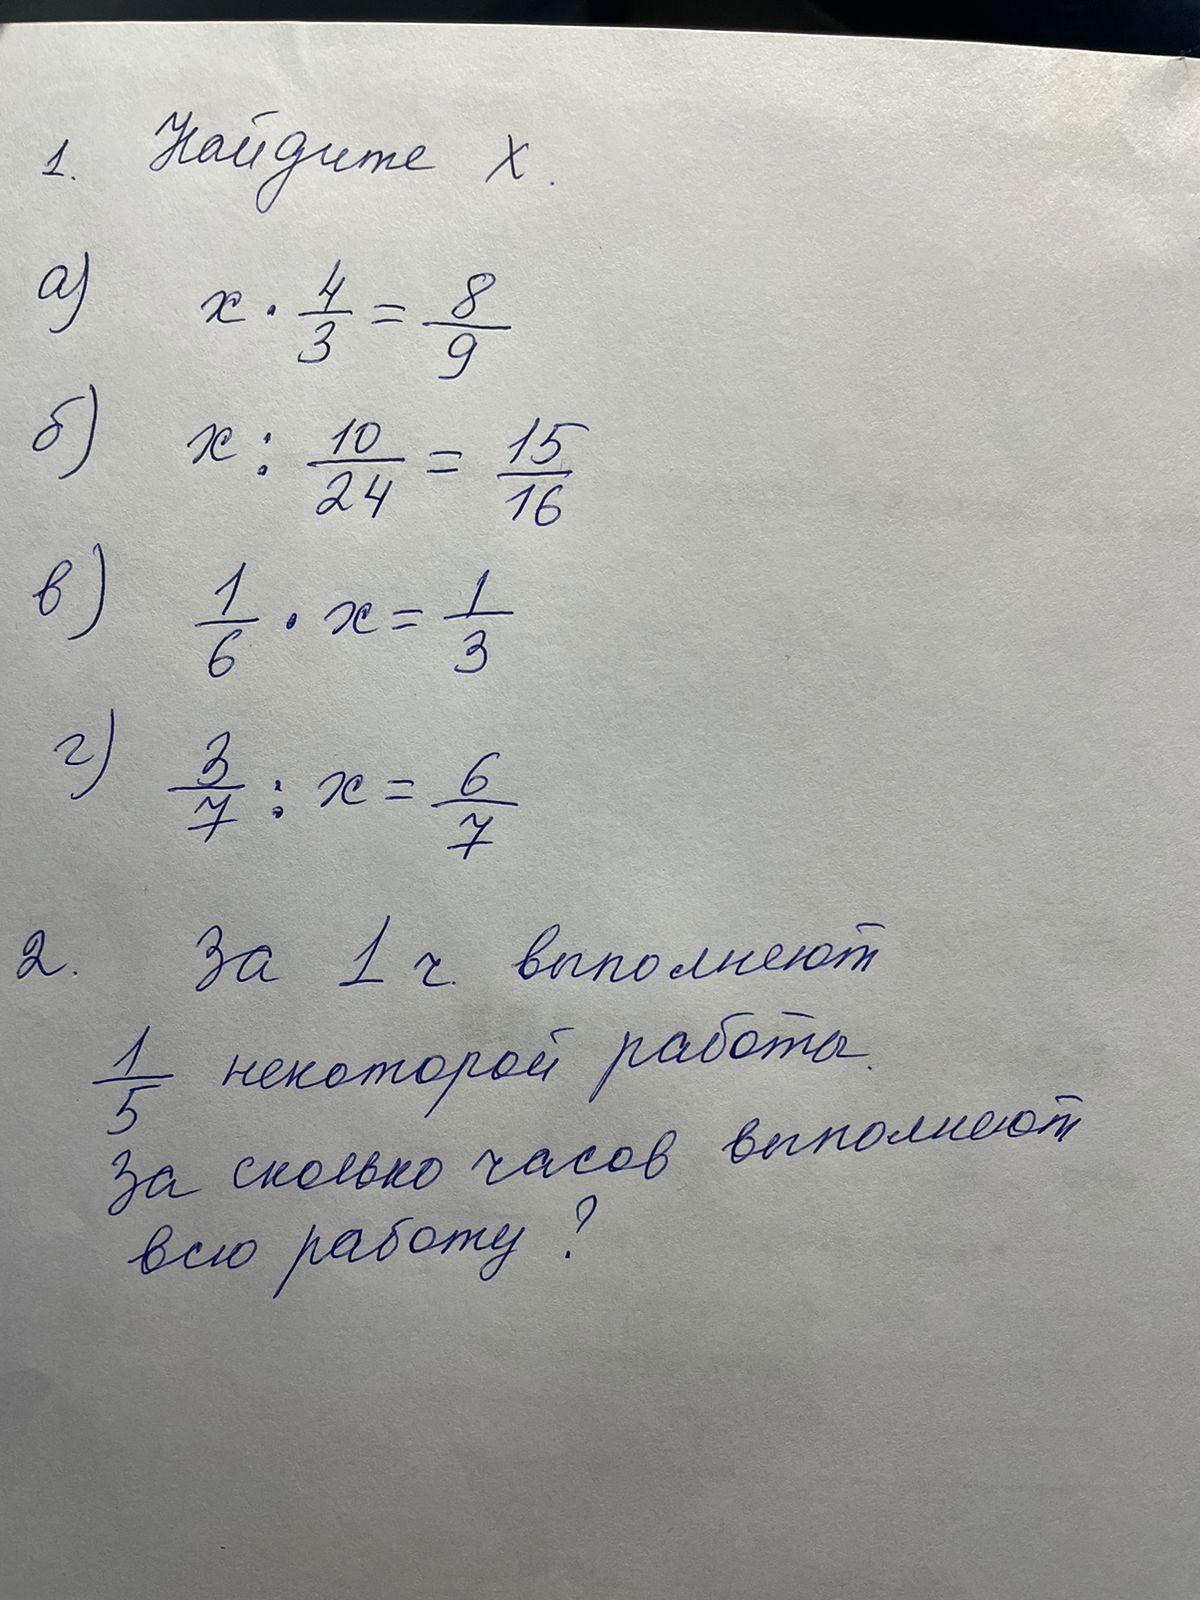 1. Найдите x.
а) x · 4/3 = 8/9
б) x : 10/24 = 15/16
в) 1/6 · x = 1/3
г) 3/7 : x = 6/7
2. За 1 ч. выполняют
1/5 некоторой работы.
За сколько часов выполняют
всю работу?